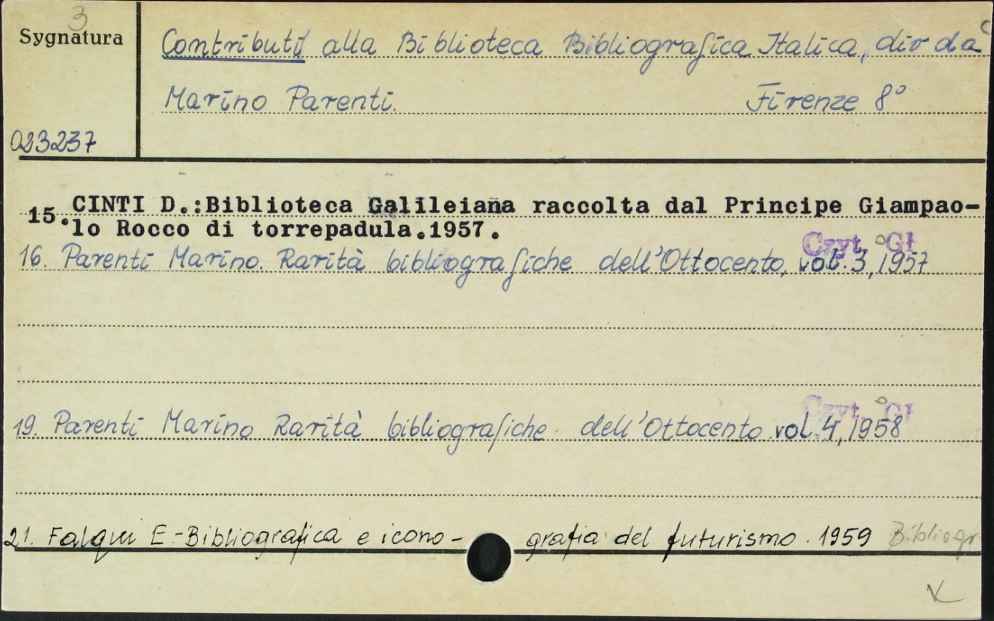 3
Sygnatura
Contributi alla Biblioteca Bibliografica Italica, dir da
Marino Parenti. Firenze 8°
023237
15. CINTI D.:Biblioteca Galileiana raccolta dal Principe Giampao-
lo Rocco di torrepadula.1957.
Czyt. Gł.
16. Parenti Marino. Rarità bibliografiche dell'Ottocento, vol. 3, 1957
Czyt. Gł.
19. Parenti Marino Rarità bibliografiche dell'Ottocento vol. 4, 1958
21. Falqui E-Bibliografica e icono- grafia del futurismo. 1959 Bibliogr